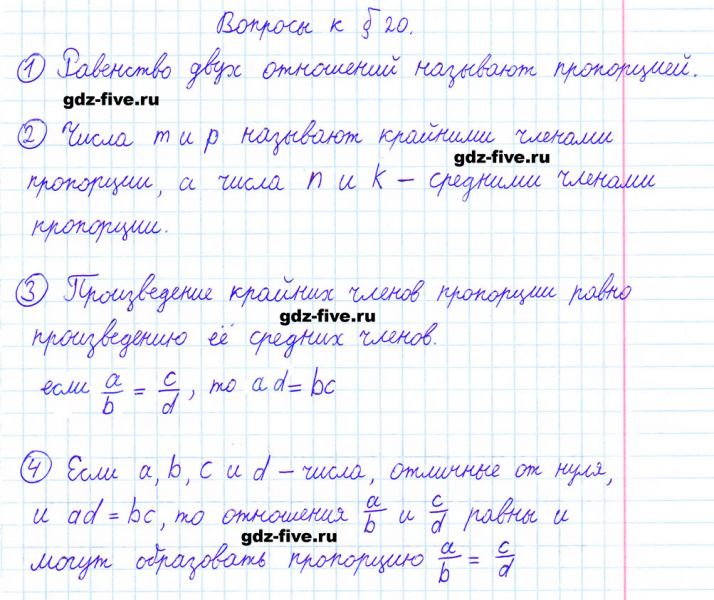 Вопросы к § 20.
① Равенство двух отношений называют пропорцией.
gdz-five.ru
② Числа m и p называют крайними членами
gdz-five.ru
пропорции, а числа n и k – средними членами
пропорции.
③ Произведение крайних членов пропорции равно
gdz-five.ru
произведению её средних членов.
если a/b = c/d, то ad = bc
④ Если a, b, c и d – числа, отличные от нуля,
и ad = bc, то отношения a/b и c/d равны и
gdz-five.ru
могут образовать пропорцию a/b = c/d